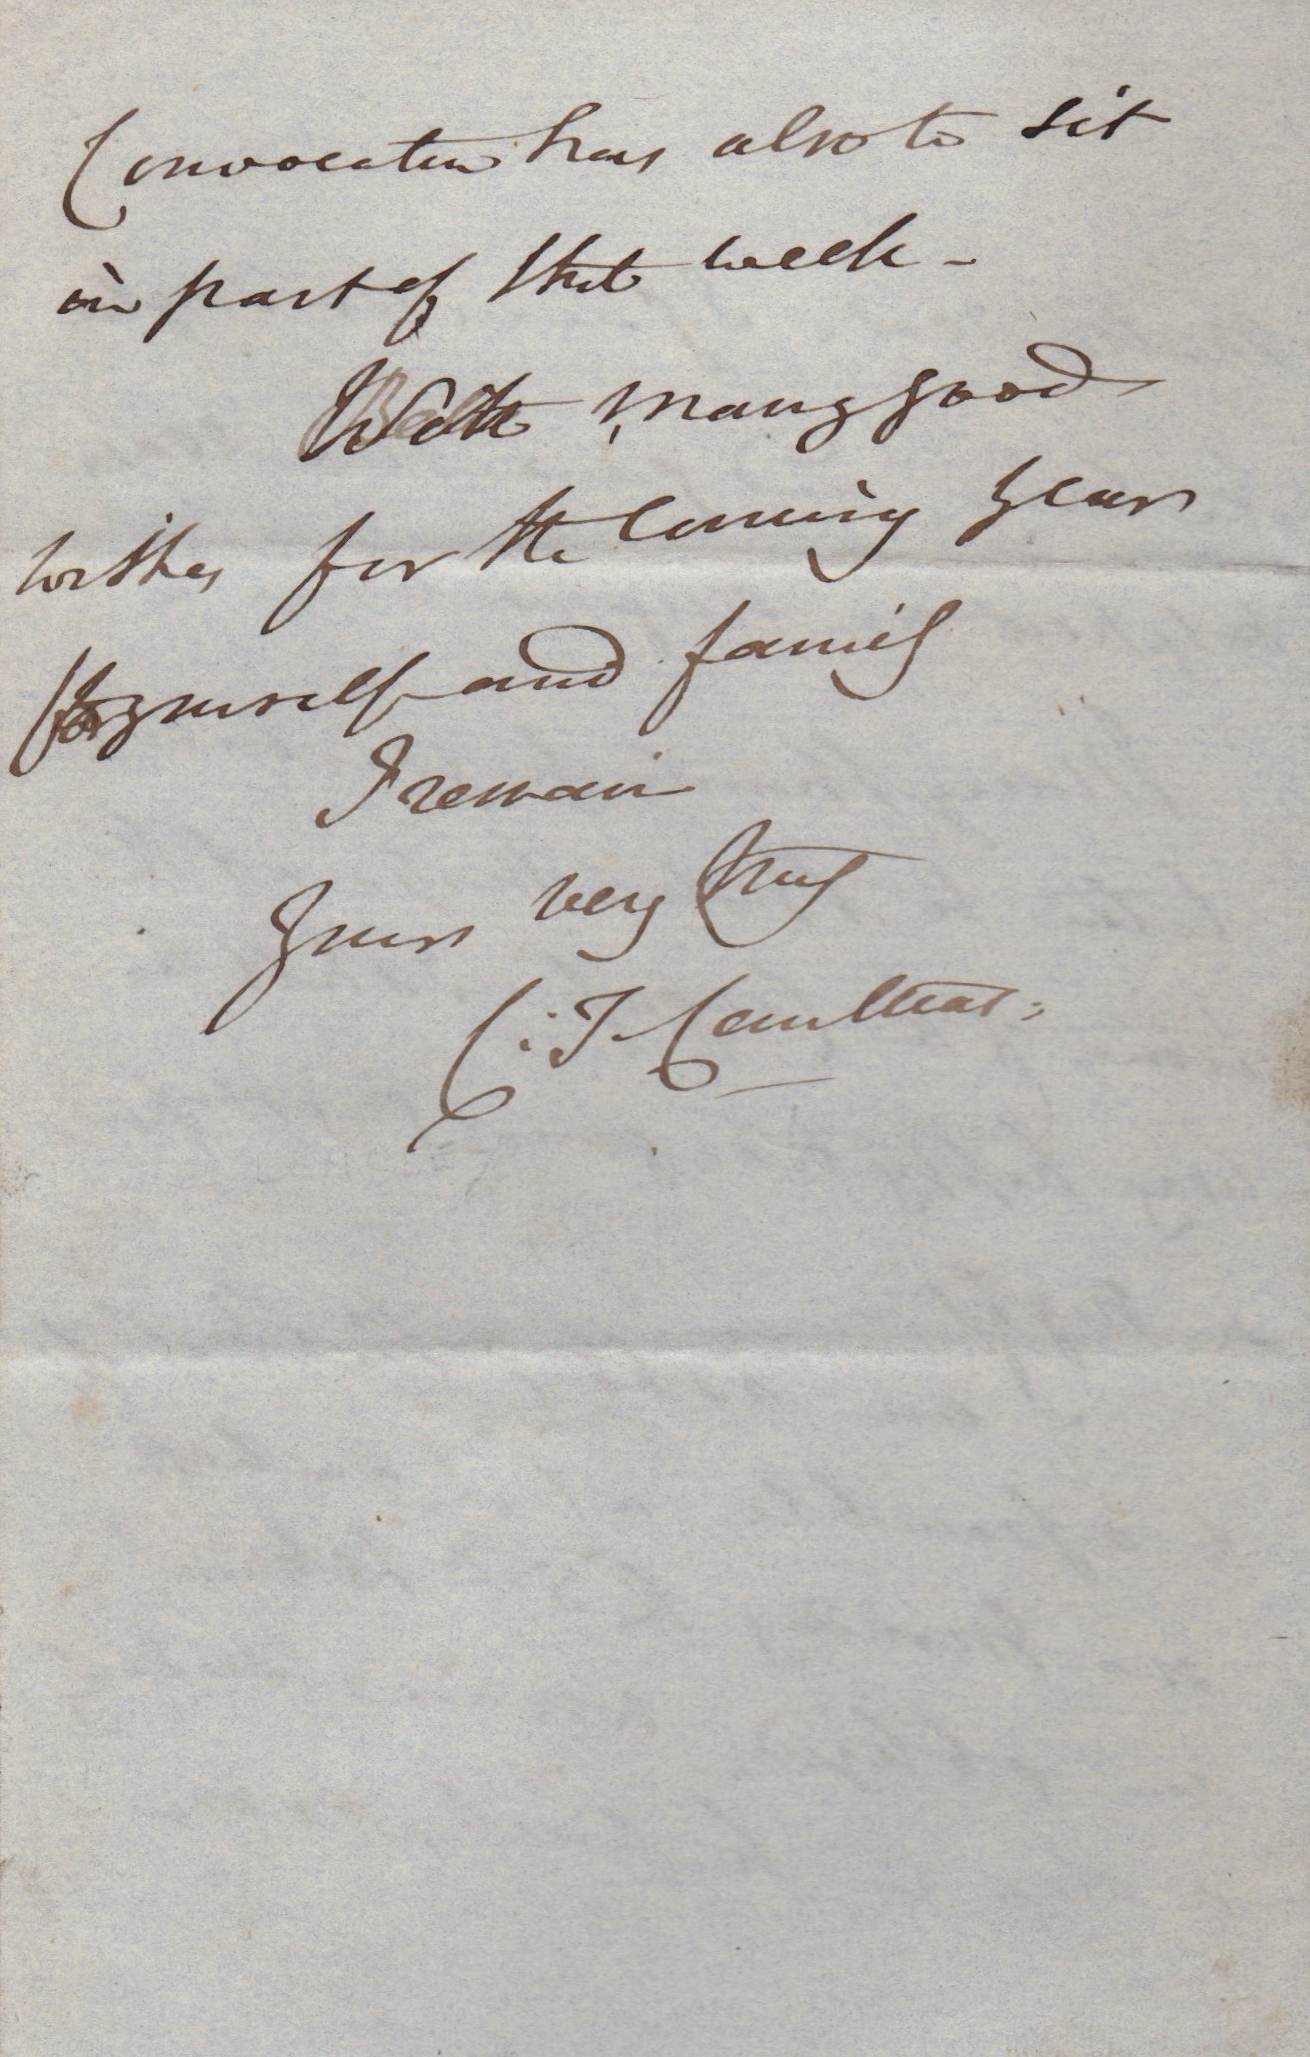 Convocation has also to sit
in part of that week -
With many good
wishes for the coming year
for yourself and family
I remain
Yours very truly
C: T.